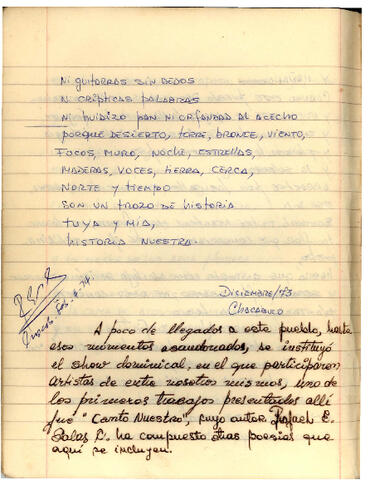 NI GUITARRAS SIN DEDOS
NI CRÍPTICAS PALABRAS
NI HUIDIZO PAN NI ORFANDAD AL ACECHO
PORQUE DESIERTO, TORRE, BRONCE, VIENTO,
FOCOS, MURO, NOCHE, ESTRELLAS,
MADERAS, VOCES, TIERRA, CERCA,
NORTE Y TIEMPO
SON UN TROZO DE HISTORIA
TUYA Y MIA,
HISTORIA NUESTRA
DICIEMBRE/73
CHACABUCO
A poco de llegados a este pueblo, hasta
esos momentos abandonados, se instituyó
el show dominical, en el que participaron
artistas de entre nosotros mismos, uno de
los primeros trabajos presentados allí
fue "Canto Nuestro", cuyo autor Rafael E.
Salas L. ha compuesto otras poesías que
aquí se incluyen.